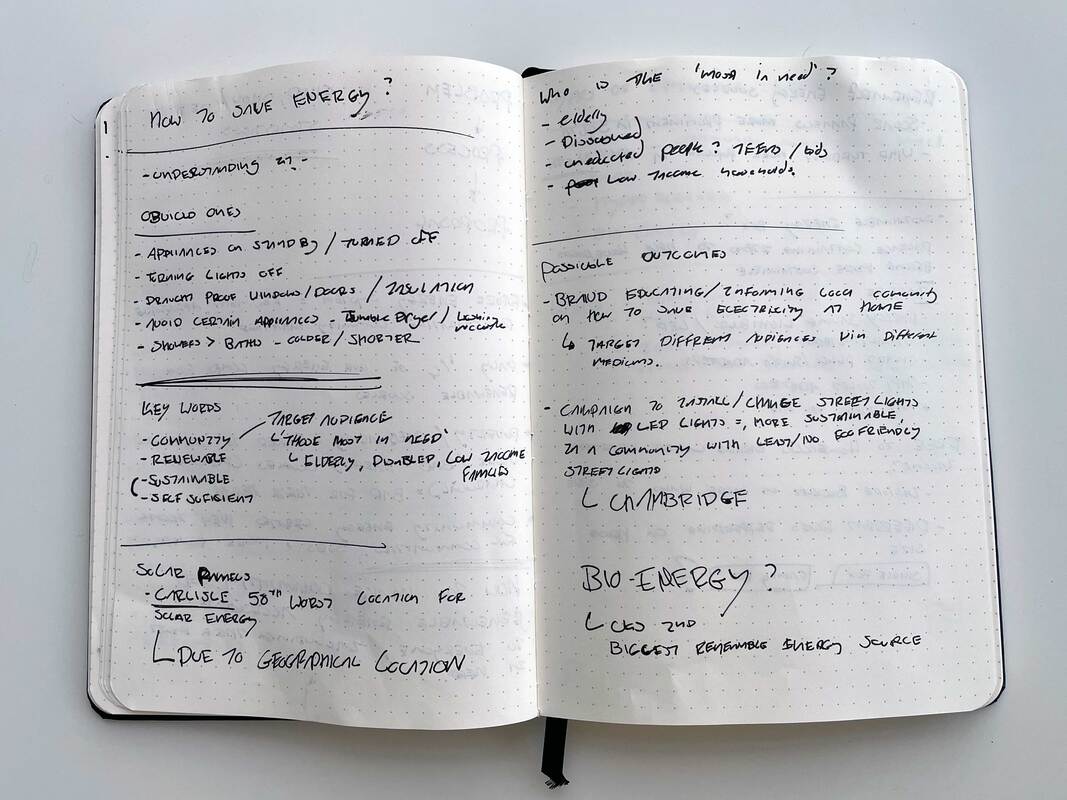 HOW TO SAVE ENERGY?
- UNDERSTANDING IT -
OBVIOUS ONES
- APPLIANCES ON STANDBY / TURNED OFF
- TURNING LIGHTS OFF
- DRAUGHT PROOF WINDOWS/DOORS / INSULATION
- AVOID CERTAIN APPLIANCES - Tumble Dryer / Washing machine
- SHOWERS > BATHS - COLDER / SHORTER
KEY WORDS
- COMMUNITY
- RENEWABLE
- SUSTAINABLE
- SELF SUFICIENT
TARGET AUDIENCE
'THOSE MOST IN NEED'
ELDERLY, DISABLED, LOW INCOME FAMILIES
SOLAR PANELS
- CARLISLE 50TH WORST LOCATION FOR
SOLAR ENERGY
DUE TO GEOGRAPHICAL LOCATION
WHO IS THE 'most in need'?
- elderly
- Disabled
- uneducated people? TEENS / kids
- Low Income households.
POSSIBLE OUTCOMES
- BRAND EDUCATING/INFORMING LOCAL community
on HOW TO SAVE ELECTRICITY AT HOME
TARGET DIFFRENT AUDIENCES VIA Different
MEDIUMS.
- CAMPAIGN TO INSTALL/CHANGE STREETLIGHTS
WITH LED LIGHTS =, MORE SUSTAINABLE,
IN A COMMUNITY WITH LEAST/NO ECO FRIENDLY
STREETLIGHTS
CUMBRIDGE
BIO-ENERGY?
UKS 2ND
BIGGEST RENEWABLE ENERGY SOURCE